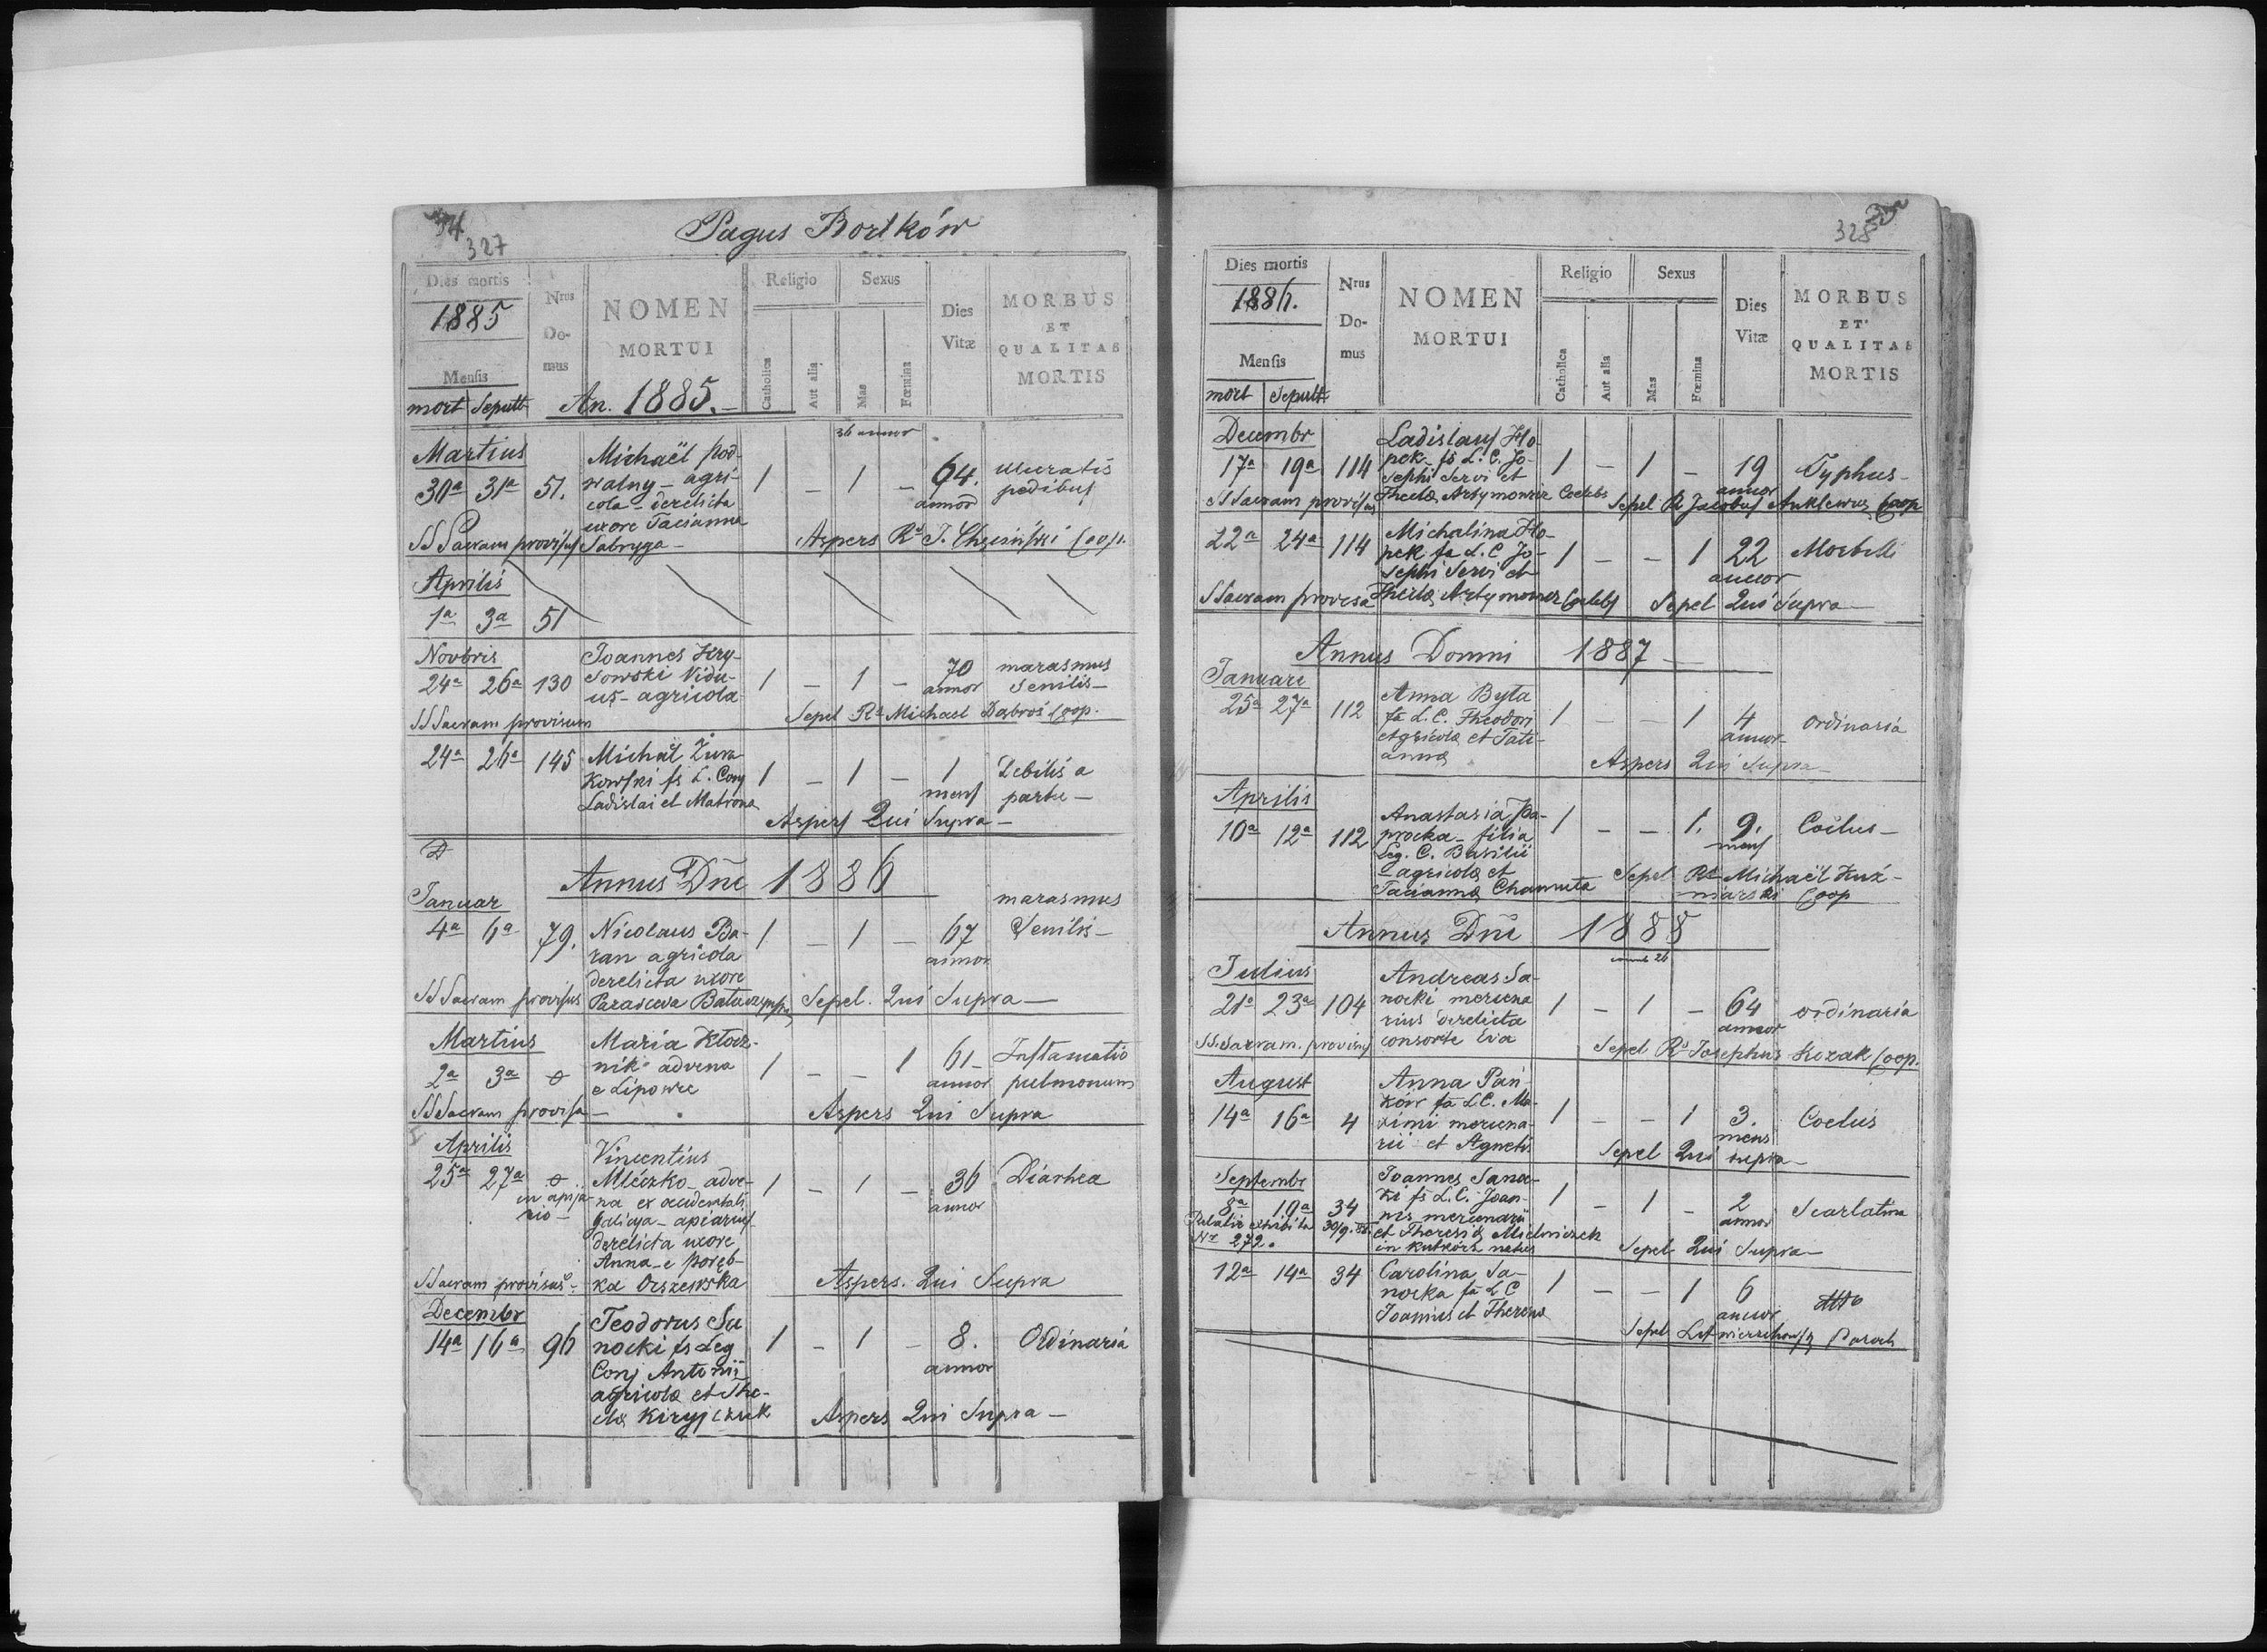 34
327
Pagus Bortków
Dies mortis
1885
Mensis
mort Sepult
Nrus
Do-
mus
NOMEN
MORTUI
An. 1885.
Religio
Catholica
Aut alia
Sexus
Mas
Fœmina
Dies
Vitæ
MORBUS
ET
QUALITAS
MORTIS
36 annor
Martius
30a 31a 51.
Michaël Pod-
walny - agri-
cola - derelicta
uxore Tacianna
Sabryga -
1 - 1 - 64.
annor
ulceratis
pedibus
SS Sacram provisus
Aspers Rd J. Chzciński Coop.
Aprilis
1a 3a 51
Novbris
24a 26a 130
Joannes Kry-
sowski Vidu-
us - agricola
1 - 1 - 70
annor
marasmus
senilis -
SS Sacram provisum
Sepel Rd Michael Dąbroś Coop.
24a 26a 145
Michał Żura-
kowski fs L. Conj
Ladislai et Matrona
1 - 1 - 1
mens
Debilis a
partu -
Aspers Qui Supra -
Annus Dñe 1886
Januar
4a 6a 79.
Nicolaus Ba-
ran agricola
derelicta uxore
Parasceva
1 - 1 - 67
annor
marasmus
Senilis -
SS Sacram provisus
Sepel. Qui Supra -
Martius
2a 3a
Maria Kłocz-
nik advena
e Lipowce
1 - - 1 61
annor
Inflamatio
pulmonum
SS Sacram provisa -
Aspers Qui Supra
Aprilis
25a 27a
in apja-
rio -
Vincentius
Mleczko - adve-
na ex accidentali
Galicya - apiarius
derelicta uxore
Anna - e Poręb-
ka Orszewska
1 - 1 - 36
annor
Diarhea
SSacram provisus -
Aspers. Qui Supra
Decembr
14a 16a 96
Teodorus Sa
nocki fs Leg
Conj Antonii
agricolæ et The-
clæ Kiryjczuk
1 - 1 - 8.
annor
Ordinaria
Aspers Qui Supra -
328
Dies mortis
1886.
Mensis
mort Sepult
Nrus
Do-
mus
NOMEN
MORTUI
Religio
Catholica
Aut alia
Sexus
Mas
Fœmina
Dies
Vitæ
MORBUS
ET
QUALITAS
MORTIS
Decembr
17a 19a 114
Ladislaus Kło-
pek fs L. C. Jo-
sephi Servi et
Theclæ Artymowicz Coelebs
1 - 1 - 19
annor
Typhus -
SS Sacram provisus
Sepel R Jacobus Anklewicz Coop
22a 24a 114
Michalina Kło-
pek fa L. C Jo-
sephi Servi et
Theclæ Artymowicz Coelebs
1 - - 1 22
annor
Morbilli
SSacram provisa
Sepel Qui Supra -
Annus Domni 1887
Januari
25a 27a 112
Anna Byta
fa L. C. Theodori
agricolæ et Tati-
annæ
1 - - 1 4
annor
ordinaria
Aspers Qui Supra -
Aprilis
10a 12a 112
Anastasia Pa-
procka - filia
Leg. C. Basilii
agricolæ et
Taciannæ Chamuta
1 - - 1. 9.
mens
Coitus -
Sepel Rd Michaël Kuź-
niarski Coop
Annus Dñi 1888
Julius
21a 23a 104
Andreas Sa-
nocki mercena
rius derelicta
consorte Eva
1 - 1 - 64
annor
ordinaria
SS. Sacram. provisus
Sepel Rd Josephus Kozak Coop.
August
14a 16a 4
Anna Pań-
ków fa L. C. Ma-
ximi mercena-
rii et Agnetis
1 - - 1 3.
mens
Coetus
Sepel Qui supra -
Septembr
8a 10a 34
Joannes Sanoc-
ki fs L. C. Joan-
nis mercenarii
et Theresiæ Mielniczek
in Kutkorz natus
1 - 1 - 2
annor
Scarlatina
Relatio exhibita 30/9. 88.
Nr 272.
Sepel Qui Supra -
12a 14a 34
Carolina Sa-
nocka fa L C
Joannis et Theresæ
1 - - 1 6
annor
dtto
Sepel Paroch